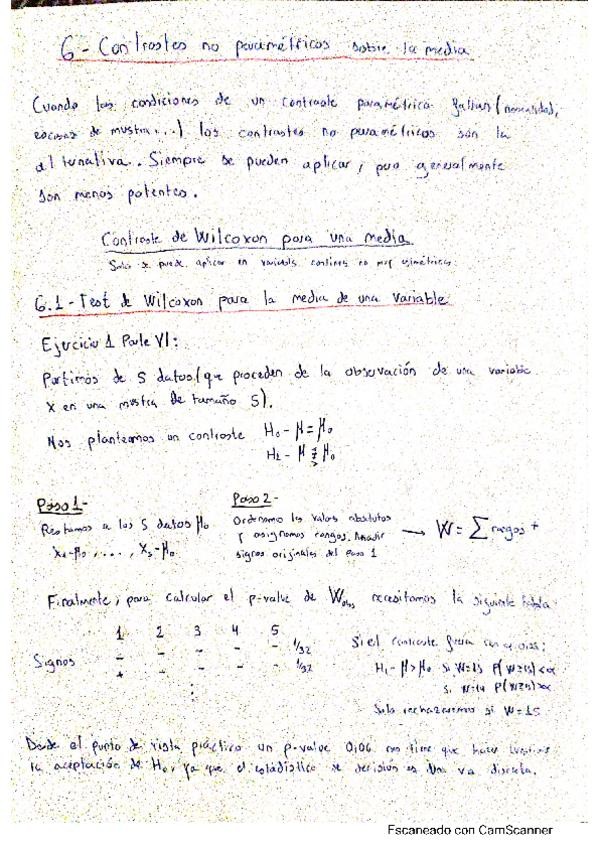 6- Contrastes no paramétricos sobre la media
Cuando las condiciones de un contraste paramétrico fallan (normalidad,
escasez de muestra...) los contrastes no paramétricos son la
alternativa. Siempre se pueden aplicar, pero generalmente
son menos potentes.
Contraste de Wilcoxon para una media
Solo se puede aplicar en variables continuas no muy asimétricas
6.1- Test de Wilcoxon para la media de una variable
Ejercicio 1 Parte VI:
Partimos de 5 datos (que proceden de la observación de una variable
X en una muestra de tamaño 5).
Nos planteamos un contraste H₀ - μ = μ₀
H₁ - μ ≠ μ₀
Paso 1-
Restamos a los 5 datos μ₀
x₁-μ₀, ..., x₅-μ₀
Paso 2-
Ordenamos los valores absolutos
y asignamos rangos. Añadir
signos originales del paso 1
→ W = Σ rangos +
Finalmente, para calcular el p-value de W necesitamos la siguiente tabla:
1 2 3 4 5
Signos - - - - - 1/32
+ - - - - 1/32
⋮
Si el contraste fuera
H₁ - μ > μ₀ si W=15 P(W≥15)<α
si W=14 P(W≥14)>α
Solo rechazaremos si W=15
Desde el punto de vista práctico un p-value 0,06 no tiene que hacer
la aceptación de H₀, ya que el estadístico de decisión es una va discreta.
Escaneado con CamScanner